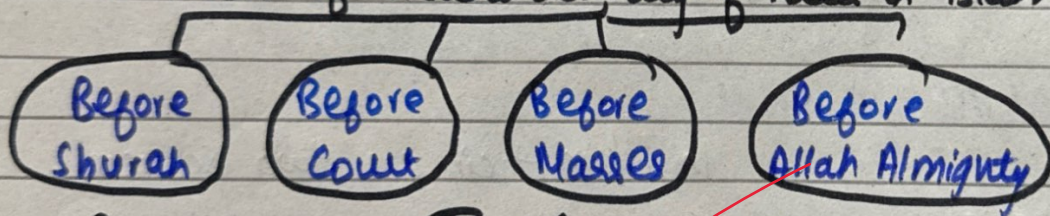 Before
Shurah
Before
Court
Before
Masses
Before
Allah Almighty